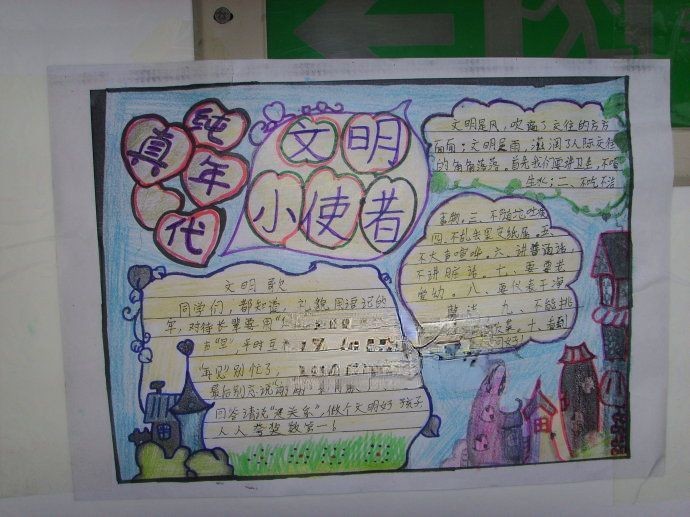 纯真年代
文明
小使者
文明是风，吹遍了交往的方方
面面；文明是雨，滋润了人际交往
的角角落落，首先我们要讲卫生，不喝
生水；二、不吃不洁
食物，三、不随地吐痰
四、不乱丢果皮纸屑。五、
不大声喧哗。六、讲普通话，
不讲脏话 七、要尊老
爱幼。八、要仪表干净
整洁 九、不能挑
文明歌
同学们，都知道，礼貌用语记的
牢，对待长辈要用“
平时
年见”别忙了，
最后别忘说
回答请说“没关系”，做个文明好孩子
人人夸奖数第一！